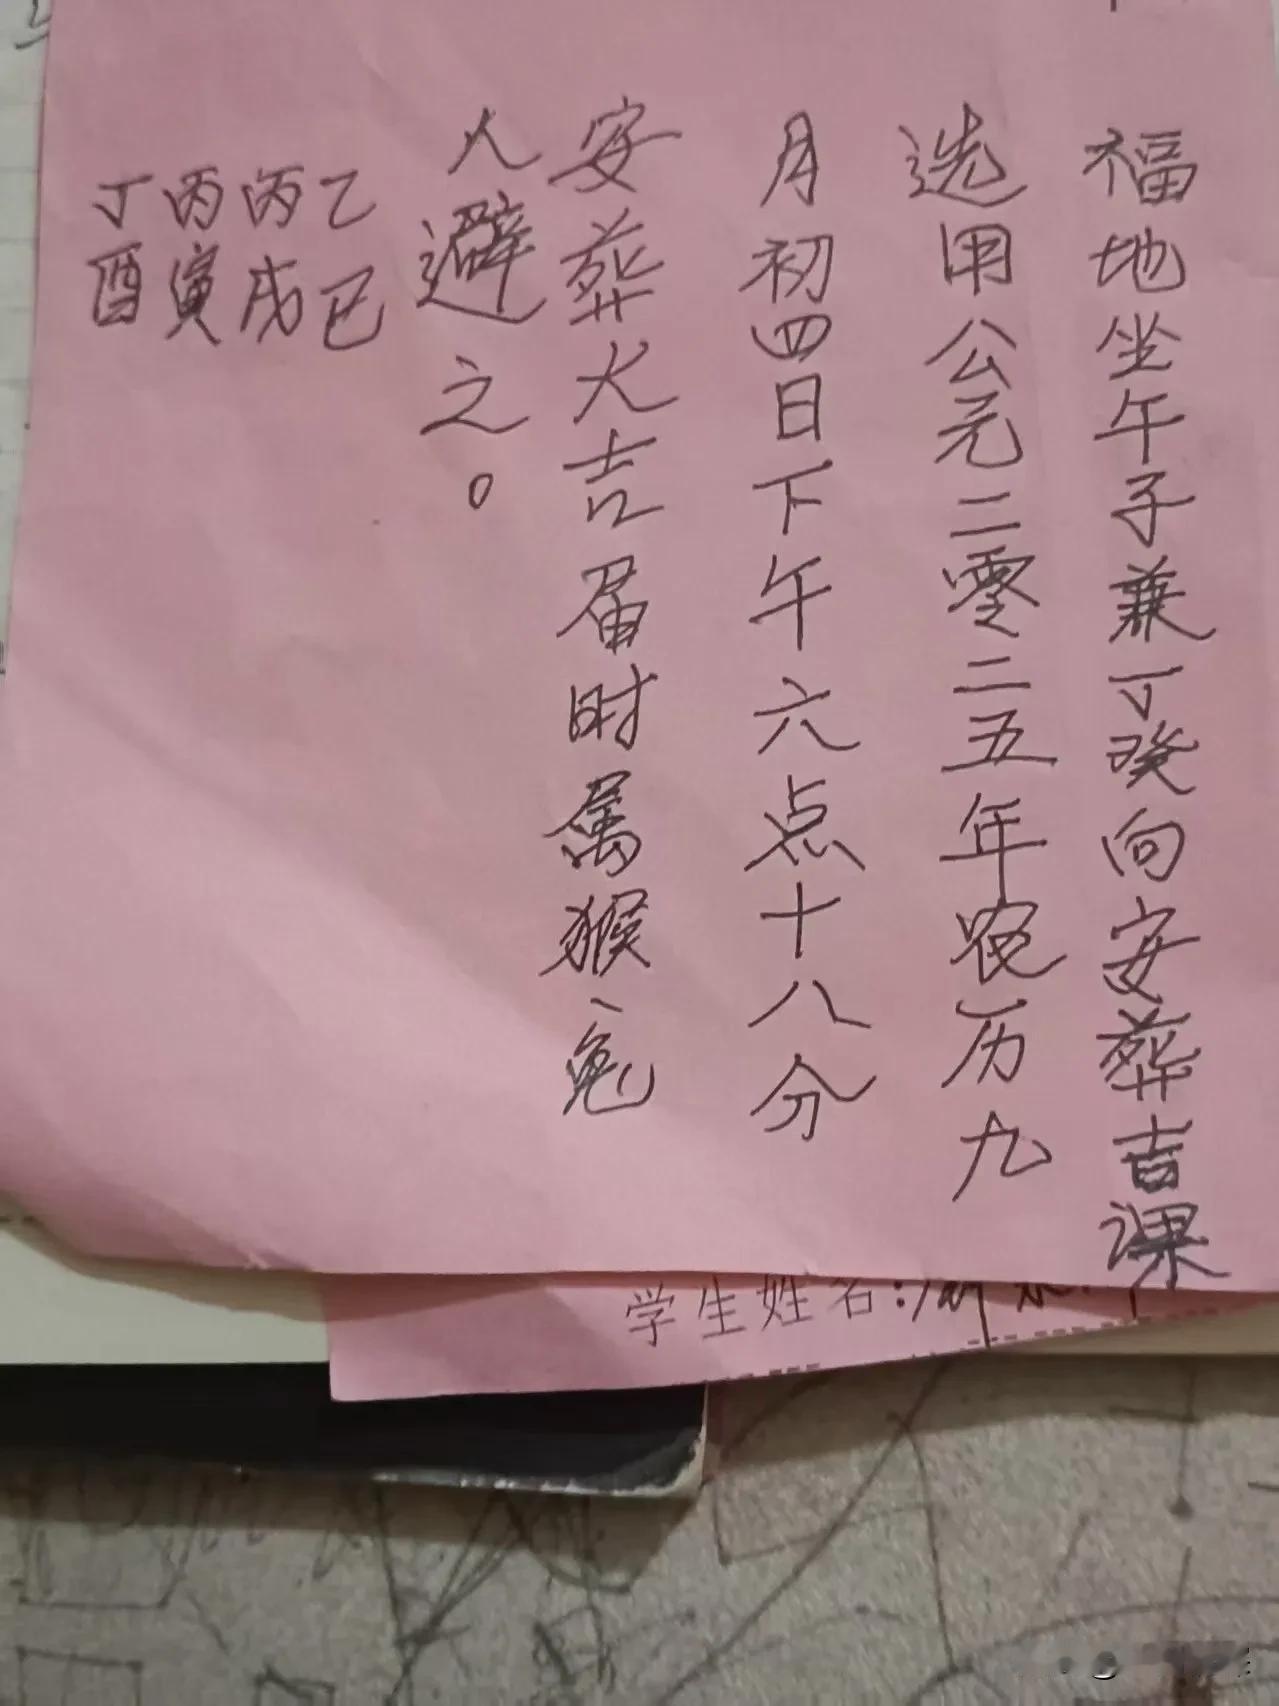 福地坐午子兼丁癸向安葬吉课
选用公元二零二五年农历九
月初四日下午六点十八分
安葬大吉届时属猴、兔
人避之。
乙巳
丙戌
丙寅
丁酉
学生姓名: